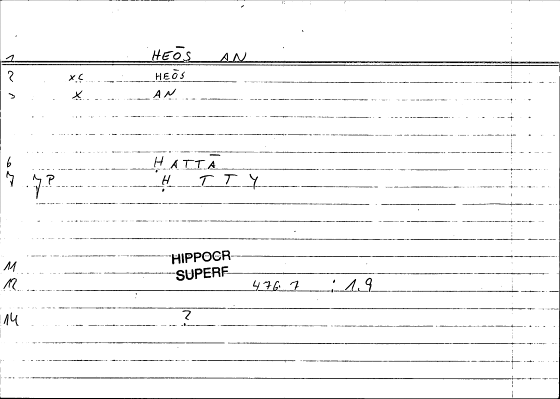 1 HEŌS AN
2 xc HEŌS
3 x AN
6 ḤATTĀ
7 7P Ḥ T T Y
11 HIPPOCR
SUPERF
12 476.7 : 1.9
14 ?